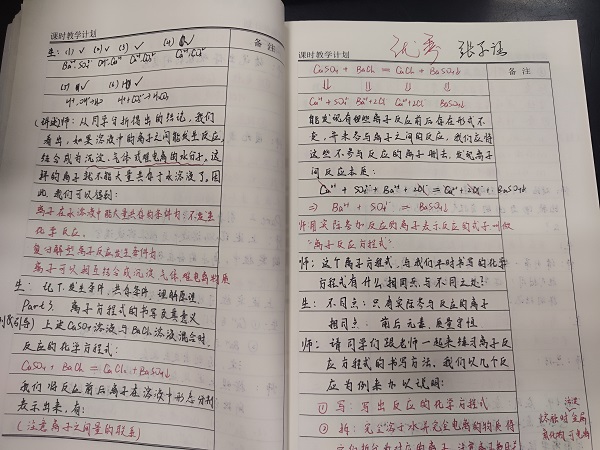 课时教学计划
备 注
生: (1) ✓ (2) ✓ (3) ✓ (4)
(讲述)师: 从同学分析得出的结论, 我们
看出, 如果溶液中的离子之间能发生反应,
结合成有沉淀、气体或难电离的水分子。这
样的离子就不能大量共存于水溶液了。因
此, 我们可以得到:
离子在水溶液中能大量共存的条件有: 不发生
化学反应。
复分解型离子反应发生条件有:
离子可以相互结合成沉淀、气体、难电离物质
生: 记下发生条件, 共存条件, 理解原理
Part 3. 离子方程式的书写及其意义
上述CuSO4溶液与BaCl2溶液混合时,
反应的化学方程式:
CuSO4 + BaCl2 = CuCl2 + BaSO4↓
我们将反应前后离子在溶液中形态分别
表示出来, 有:
(注意离子之间量的联系)
课时教学计划
优秀
备 注
CuSO4 + BaCl2 = CuCl2 + BaSO4↓
Cu²⁺+SO4²⁻ Ba²⁺+2Cl⁻ Cu²⁺+2Cl⁻ BaSO4↓
能发现有些离子反应前后存在形式不
变, 并未参与离子之间的反应, 我们应将
这些不参与反应的离子删去, 发现离子
间反应本质:
Cu²⁺ + SO4²⁻ + Ba²⁺ + 2Cl⁻ = Cu²⁺ + 2Cl⁻ + BaSO4↓
⇒ Ba²⁺ + SO4²⁻ = BaSO4↓
师: 用实际参加反应的离子表示反应的式子叫做
"离子反应方程式"
师: 这个离子方程式, 与我们平时书写的化学
方程式有什么相同点与不同之处?
生: 不同点: 只有实际参与反应的离子
相同点: 前后元素、质量守恒
师: 请同学们跟老师一起来练习离子反
应方程式的书写方法, 我们以几个反
应为例来加以说明:
① 写: 写出反应的化学方程式
② 拆: 完全溶于水并完全电离的物质得